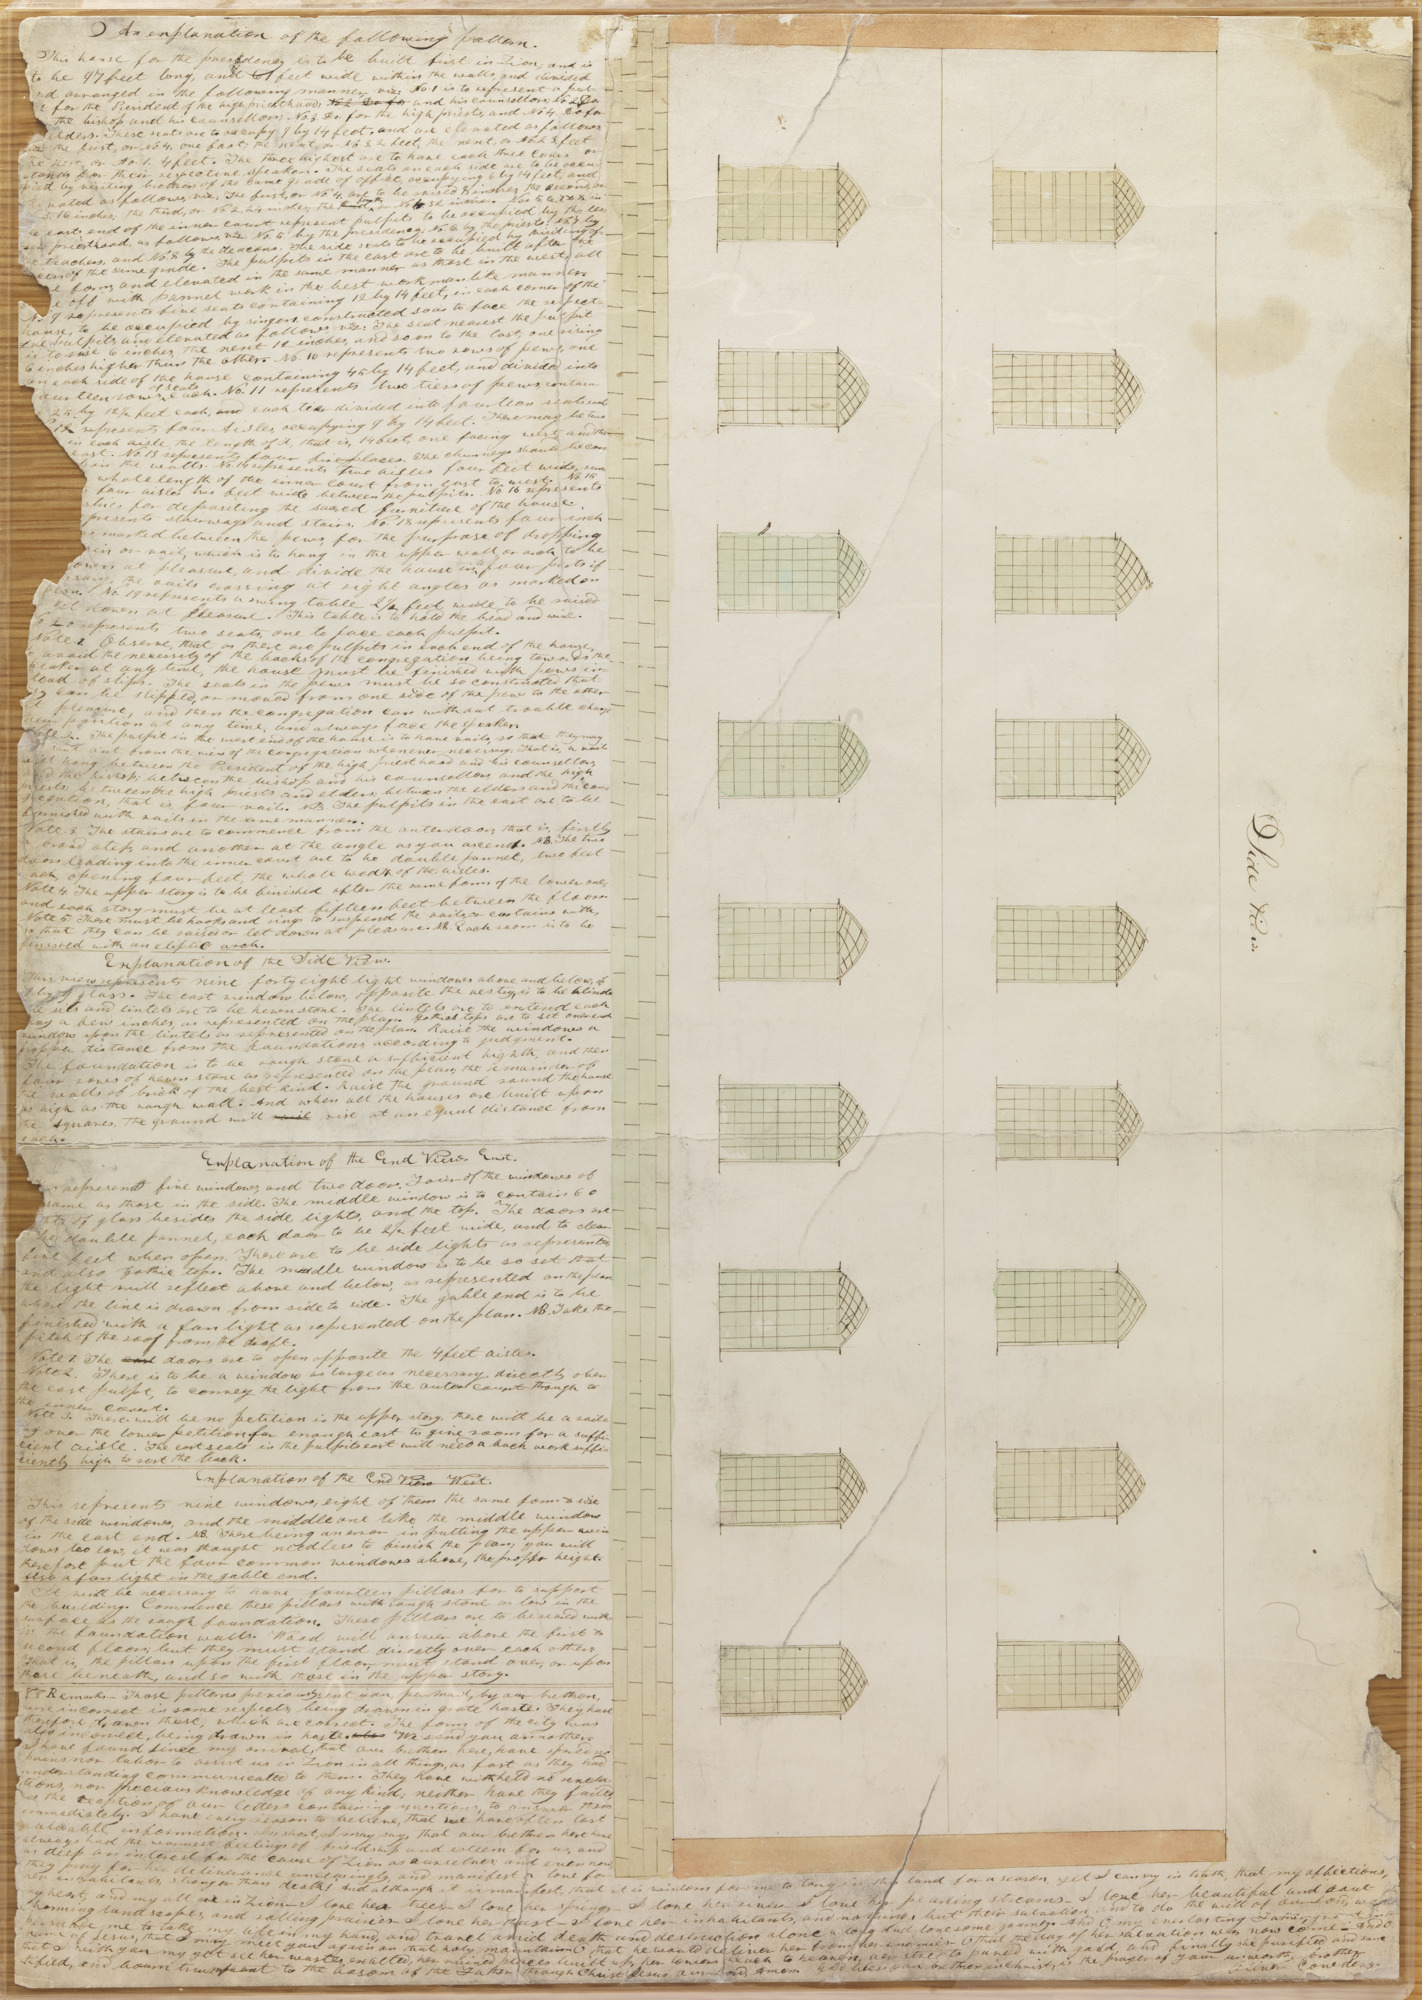 An explanation of the following pattern.
This house for the presidency is to be built first in Zion, and is
to be 97 feet long, and 61 feet wide within the walls, and divided
and arranged in the following manner, viz: No. 1 is to represent a
for the President of the high priesthood, and his counsellors; No 2 Do
the bishop and his counsellors; No. 3, Do for the high priests; and No 4. Do for
elders. These seats are to occupy 9 by 14 feet, and are elevated as follows
the first, or No 4. one foot; the next, or No. 3, 2 feet, the next, or No. 2 3 feet
or No. 1. 4 feet. The three highest are to have each three
stands for their respective speakers. The seats on each side are to be occu-
pied by visiting brethren of the same grade of office, occupying 6 by 14 feet, and
elevated as follows, viz: The first, or No 4, are to be raised 8 inches, the second, or
3, 16 inches, the third, or No 2, 24 inches, the or No 1, 32 inches.
east end of the inner court represent pulpits to be occupied by the les-
priesthood, as follows, viz: No. 5 by the presidency; No 6 by the priests; No 7 by
teachers, and No. 8 by the deacons. The side seats to be occupied by visiting of-
of the same grade. The pulpits in the east are to be built after the
form, and elevated in the same manner as those in the west, all
off with pannel work in the best workmanlike manner.
No. 9 represents five seats containing 12 by 14 feet, in each corner of the
house, to be occupied by singers, constructed so as to face the respect-
ive pulpits, and elevated as follows, viz: The seat nearest the pulpit
is to rise 6 inches, the next 12 inches, and so on to the last, one rising
6 inches higher than the other. No 10 represents two rows of pews, one
on each side of the house containing by 14 feet, and divided into
fourteen rows seats each. No. 11 represents two tiers of pews, contain-
by feet each, and each tier divided into fourteen seats each
12 represents four Aisles, occupying 9 by 14 feet. There may be two
in each aisle, the length of it, that is, 14 feet, one facing west, and the
east. No 13 represents four fireplaces. The chimneys should be con
in the walls. No. 14 represents two aisles four feet wide, run
whole length of the inner court from east to west. No 15
four aisles two feet wide between the pulpits. No. 16 represents
for depositing the sacred furniture of the house.
presents stairways and stairs. No. 18 represents four inch
marked between the pews, for the purpose of dropping
or vail, which is to hang in the upper wall, or arch, to be
down at pleasure, and divide the house into four parts if
the vails crossing at right angles as marked on
plan. No. 19 represents a swing table 2½ feet wide to be raised
let down at pleasure. This table is to hold the bread and wine.
20 represents two seats, one to face each pulpit.
Note 1. Observe, that, as there are pulpits in each end of the house,
to avoid the necessity of the backs of the congregation being towards the
speaker at any time, the house must be finished with pews in-
stead of slips. The seats in the pews must be so constructed that
they can be slipped, or moved from one side of the pew to the other
at pleasure, and then the congregation can without trouble change
their position at any time, and always face the speaker.
Note 2. The pulpit in the west end of the house is to have vails, so that they may
shut out from the view of the congregation whenever necessary. That is, a vail
will hang between the President of the high priesthood and his counsellors,
and the bishop; between the bishop and his counsellors and the high
priests, between the high priests and elders, between the elders and the con-
gregation, that is four vails. NB. The pulpits in the east are to be
furnished with vails in the same manner.
Note 3. The stairs are to commence from the outer doors, that is, firstly
a broad step, and another at the angle as you ascend. NB. The two
doors leading into the inner court are to be double pannel, two feet
each, opening four feet, the whole width of the aisles.
Note 4. The upper story is to be finished after the same form of the lower one,
and each story must be at least fifteen feet between the floors
Note 5. There must be hooks and rings to suspend the vails, or curtains with,
so that they can be raised or let down at pleasure. NB. Each room is to be
finished with an eliptic arch.
Explanation of the Side View.
This view represents nine forty eight light windows above and below, of
7 by 9 glass. The east window below, opposite the vestry, is to be blinds
The sills and lintels are to be hewn stone. The lintels are to extend each
way a few inches, as represented on the plan. Gothic tops are to set over each
window upon the lintels as represented on the plan. Raise the windows a
propper distance from the foundations according to judgment.
The foundation is to be rough stone a sufficient highth, and then
four rows of hewn stone as represented on the plan; the remainder of
the walls of brick of the best kind. Raise the ground round the house
as high as the rough wall. And when all the houses are built upon
the squares, the ground will rise at an equal distance from
each.
Explanation of the End View East.
represents five windows, and two doors. Four of the windows of
same as those in the side. The middle window is to contain 60
lights of glass besides the side lights, and the top. The doors are
to be double pannel, each door to be 2½ feet wide, and to clear
five feet when open. There are to be side lights as represented
and also gothic tops. The middle window is to be so set that
the light will reflect above and below, as represented on the plan
where the line is drawn from side to side. The gable end is to be
finished with a fan light as represented on the plan. NB. Take the
pitch of the roof from the draft.
Note 1. The doors are to open opposite the 4 feet aisles.
Note 2. There is to be a window as large as necessary, directly over
the east pulpit, to convey the light from the outer court through to
the inner court.
Note 3. There will be no petition in the upper story, there will be a rail-
ing over the lower petition far enough east to give room for a suffi-
cient aisle. The east seats in the pulpits east will need a back work suffi-
ciently high to rest the back.
Explanation of the End View West.
This represents nine windows, eight of them the same form & size
of the side windows, and the middle one like the middle window
in the east end. NB. There being an error in putting the upper win-
dows too low, it was thought needless to finish the plan; you will
therefore put the four common windows above, the propper height.
Also a fan light in the gable end.
It will be necessary to have fourteen pillars for to support
the building. Commence these pillars with rough stone as low in the
surface as the rough foundation. These pillars are to be raised with
in the foundation walls. Wood will answer above the first &
second floors; but they must stand directly over each other.
That is, the pillars upon the first floor, must stand over, or upon
those beneath, and so with those in the upper story.
Remarks. Those patterns previously sent you, per mail, by our brethren,
were incorrect in some respects, being drawn in grate haste. They have
therefore drawn these, which are correct. The form of the city was
also incorrect, being drawn in haste. We send you another.
I have found since my arrival, that our brethren here, have spared no
pains nor labor to assist us in Zion in all things, as fast as they had
understanding communicated to them. They have withheld no revela-
tions, nor precious knowledge of any kind; neither have they failed
on the reception of our letters containing questions, to answer them
immediately. I have every reason to believe, that we have often lost
valuable information. In short, I may say, that our brethren here have
always had the warmest feelings of friendship and esteem for us, and
as deep an interest for the cause of Zion as ourselves; and even now,
they pray for her deliverance unceasingly, and manifest a love for
her inhabitants, stronger than death. And although it is manifest, that it is wisdom for me to tarry in this land for a season, yet I can say in truth, that my affections,
my heart, and my all are in Zion. I love her trees. I love her springs. I love her rivers. I love her pearling streams. I love her beautiful and
charming landscapes, and rolling prairies. I love her dust. I love her inhabitants, and nothing but their salvation, and to do the will of
me to take my life in my hand, and travel amid death and destruction alone a long and lonesome journey. And O my everlasting Father,
name of Jesus, that I may meet you again on that holy mountain. O that he would deliver her from her enemies. O that the day of her salvation was now come. And O
that I with you may yet see her wastes, exalted, her ruined places built up, her towers reach to heaven, her streets paved with gold, and finally she purified and
and borne triumphant to the bosom of the Father through Christ Jesus our Lord, Amen. God bless you brethren in Christ, is the prayer of your unworthy brother
Oliver Cowdery.
Side View.